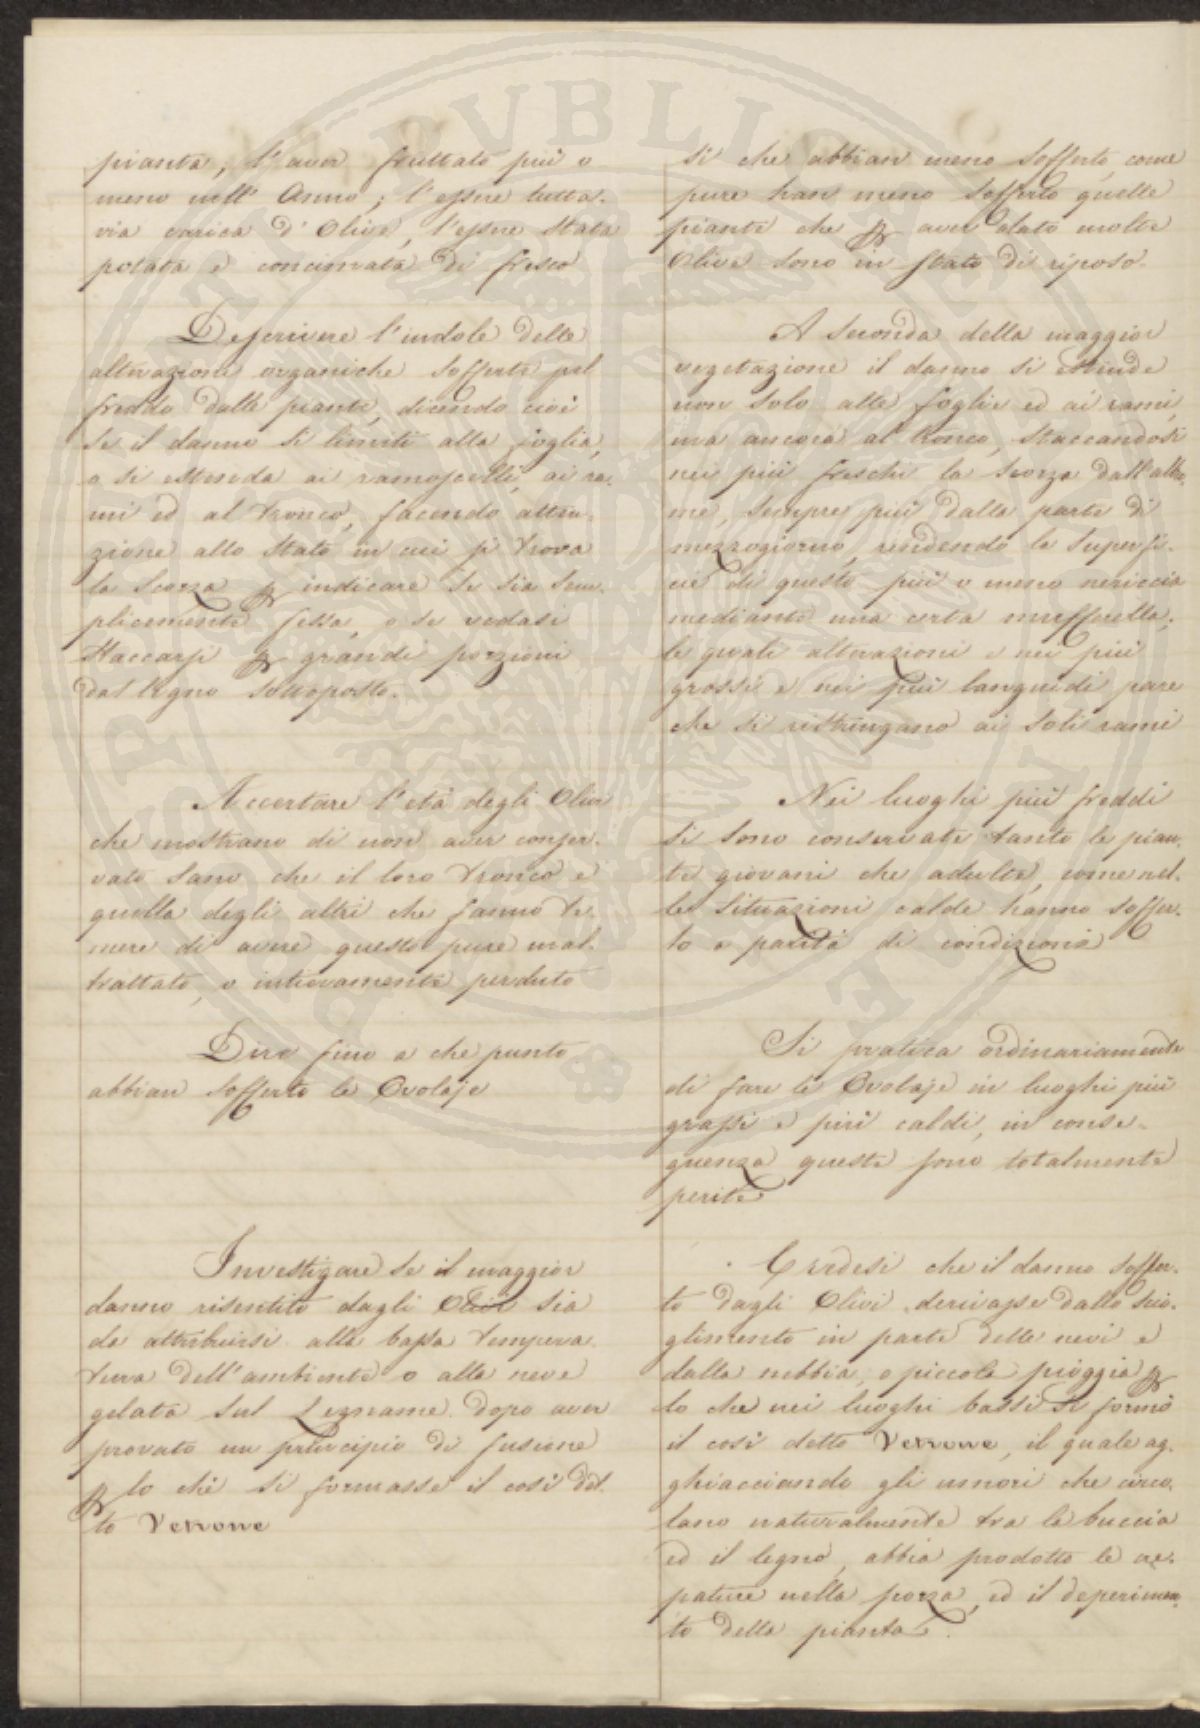 pianta; l'aver fruttato più o
meno nell'Anno; l'essere tutta-
via carica d'Olive, l'essere stata
potata e concimata di fresco
Descrivere l'indole delle
alterazioni organiche sofferte pel
freddo dalle piante, dicendo cioè
se il danno si limiti alla foglia,
o si estenda ai ramoscelli, ai ra-
mi ed al tronco, facendo atten-
zione allo stato in cui si trova
la scorza indicare se sia sem-
plicemente fessa, o se vedasi
staccarsi grandi porzioni
dal legno sottoposto.
Accertare l'età degli Olivi
che mostrano di non aver conser-
vato sano che il loro tronco e
quella degli altri che fanno te-
mere di avere questo pure mal-
trattato, o intieramente perduto
Dire fino a che punto
abbian sofferto le Ovolaje
Investigare se il maggior
danno risentito dagli Olivi sia
da attribuirsi alla bassa tempera-
tura dell'ambiente o alla neve
gelata sul Legname dopo aver
provato un principio di fusione
lo chè si formasse il così det-
to Vetrone
si che abbian meno sofferto, come
pure han meno sofferto quelle
piante che aver dato molte
Olive sono in stato di riposo.
A seconda della maggior
vegetazione il danno si estende
non solo alle foglie ed ai rami,
ma ancora al tronco, staccandosi
nei più freschi la scorza dall'albu-
me, sempre più dalla parte di
mezzogiorno, rendendo la superfi-
cie di questo più o meno nericcia
mediante una certa muffarella;
le quali alterazioni e nei più
grossi e nei più languidi pare
che si restringano ai soli rami
Nei luoghi più freddi
si sono conservate tanto le pian-
te giovani che adulte, come nel-
le situazioni calde hanno soffer-
to a parità di condizione
Si pratica ordinariamente
di fare le Ovolaje in luoghi più
grassi e più caldi, in conse-
guenza queste sono totalmente
perite
Credesi che il danno soffer-
to dagli Olivi derivasse dallo scio-
glimento in parte delle nevi e
dalla nebbia, o piccola pioggia
lo che nei luoghi bassi si formò
il così detto Vetrone, il quale ag-
ghiacciando gli umori che circo-
lano naturalmente tra la buccia
ed il legno, abbia prodotto le cre-
pature nella scorza, ed il deperimen-
to della pianta.
PVBLICA